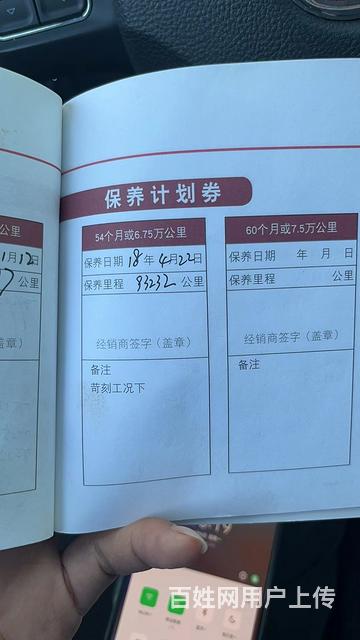 保养计划券
公里
1月12日
7 公里
章）
54个月或6.75万公里
保养日期 18年 4月22日
保养里程 93232 公里
经销商签字（盖章）
备注
苛刻工况下
60个月或7.5万公里
保养日期 年 月 日
保养里程 公里
经销商签字（盖章）
备注
百姓网用户上传